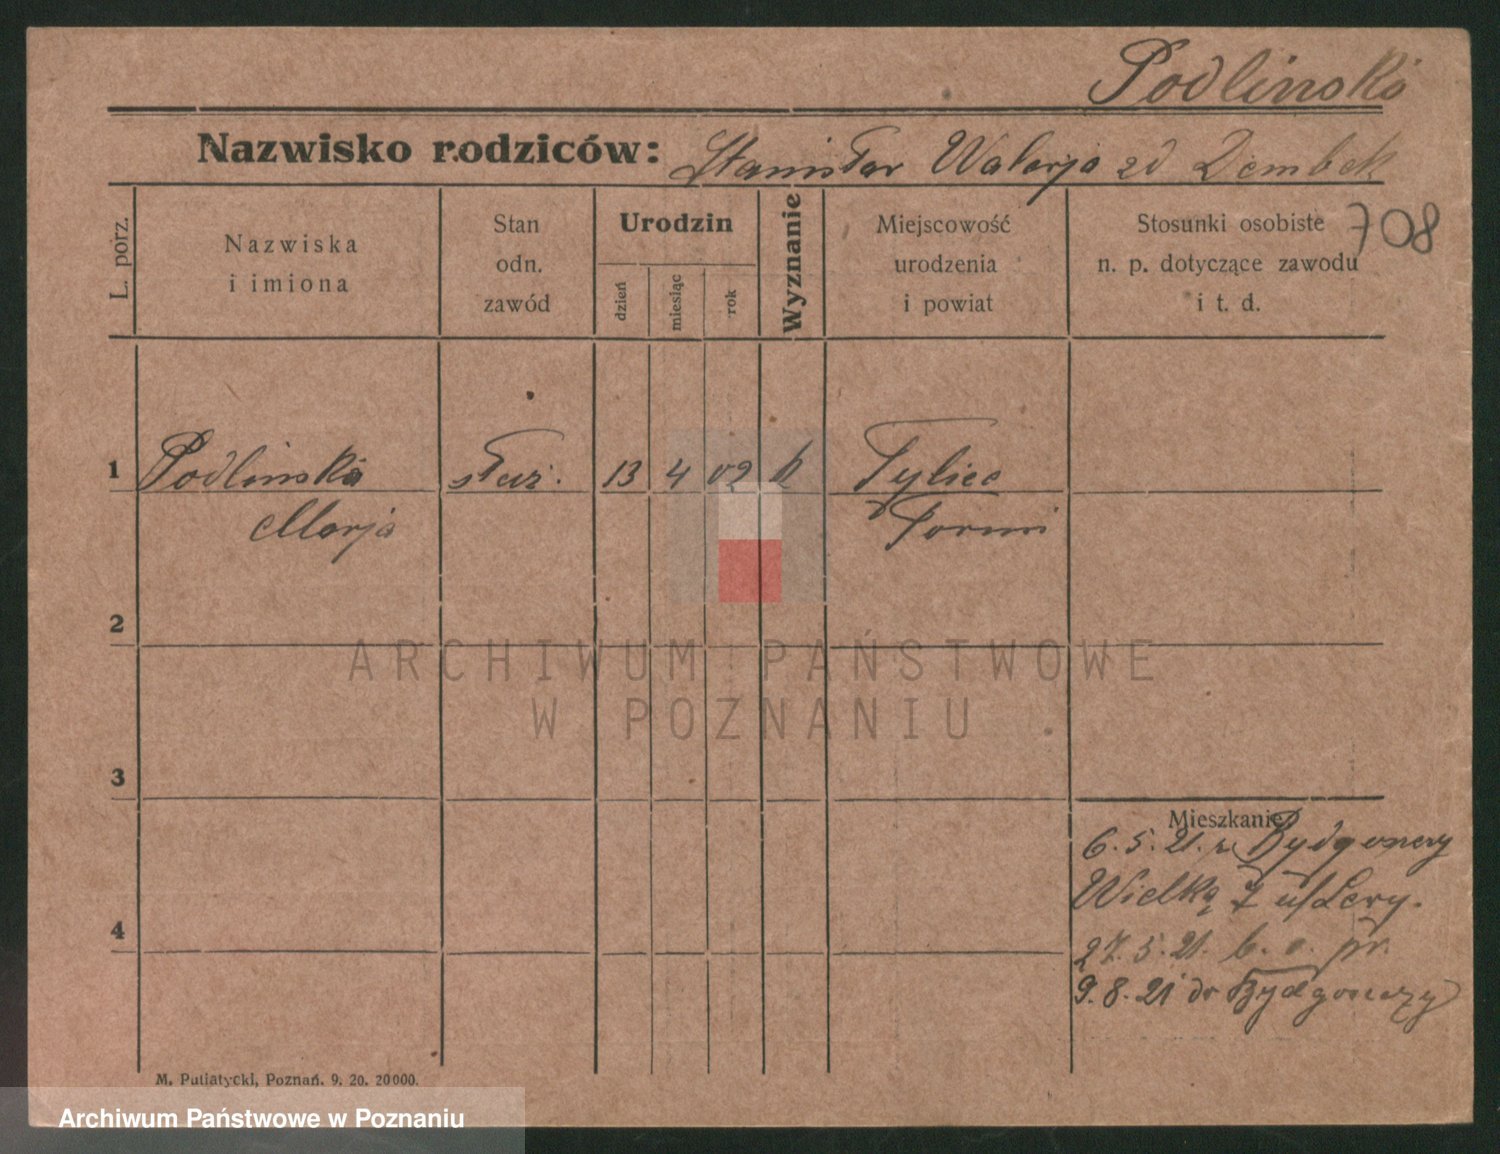 Podlinska
Nazwisko rodziców: Stanisław Walerja zd Dembek
L. porz.
Nazwiska
i imiona
Stan
odn.
zawód
Urodzin
dzień
miesiąc
rok
Wyznanie
Miejscowość
urodzenia
i powiat
Stosunki osobiste
n. p. dotyczące zawodu
i t. d.
708
1 Podlinska służ. 13 4 02 k Tylice
Marja Toruń
2
3
4
Mieszkanie
6. 5. 21. z Bydgoszczy
Wielka 7 u/Lery.
27. 5. 21. b. o. pr.
9. 8. 21 do Bydgoszczy
M. Putiatycki, Poznań. 9. 20. 20000.
ARCHIWUM PAŃSTWOWE
W POZNANIU
Archiwum Państwowe w Poznaniu